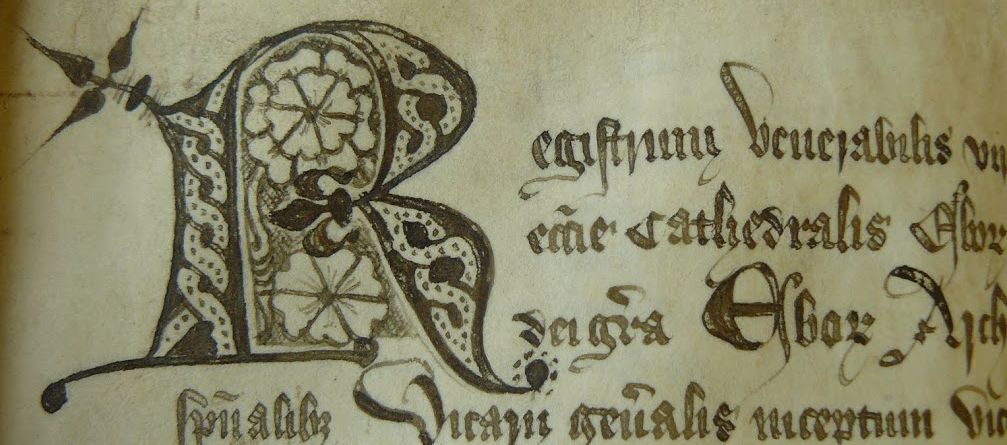 Registrum venerabilis
ecc̃ie Cathedralis Ebor
dei gr̃a Ebor Arch
sp̃ualibȝ Vicarii gen̄alis inceptum